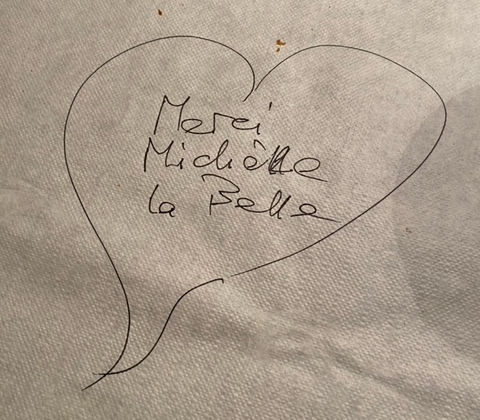 Merci
Michèlle
la Belle